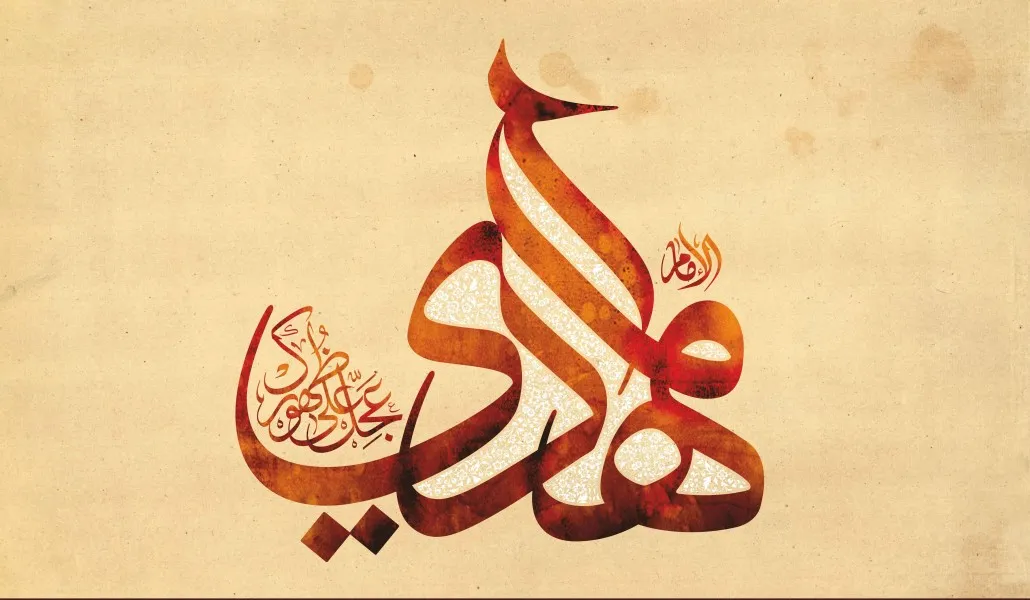 الإمام
المهدي
عَجِّل عَلى ظُهورك